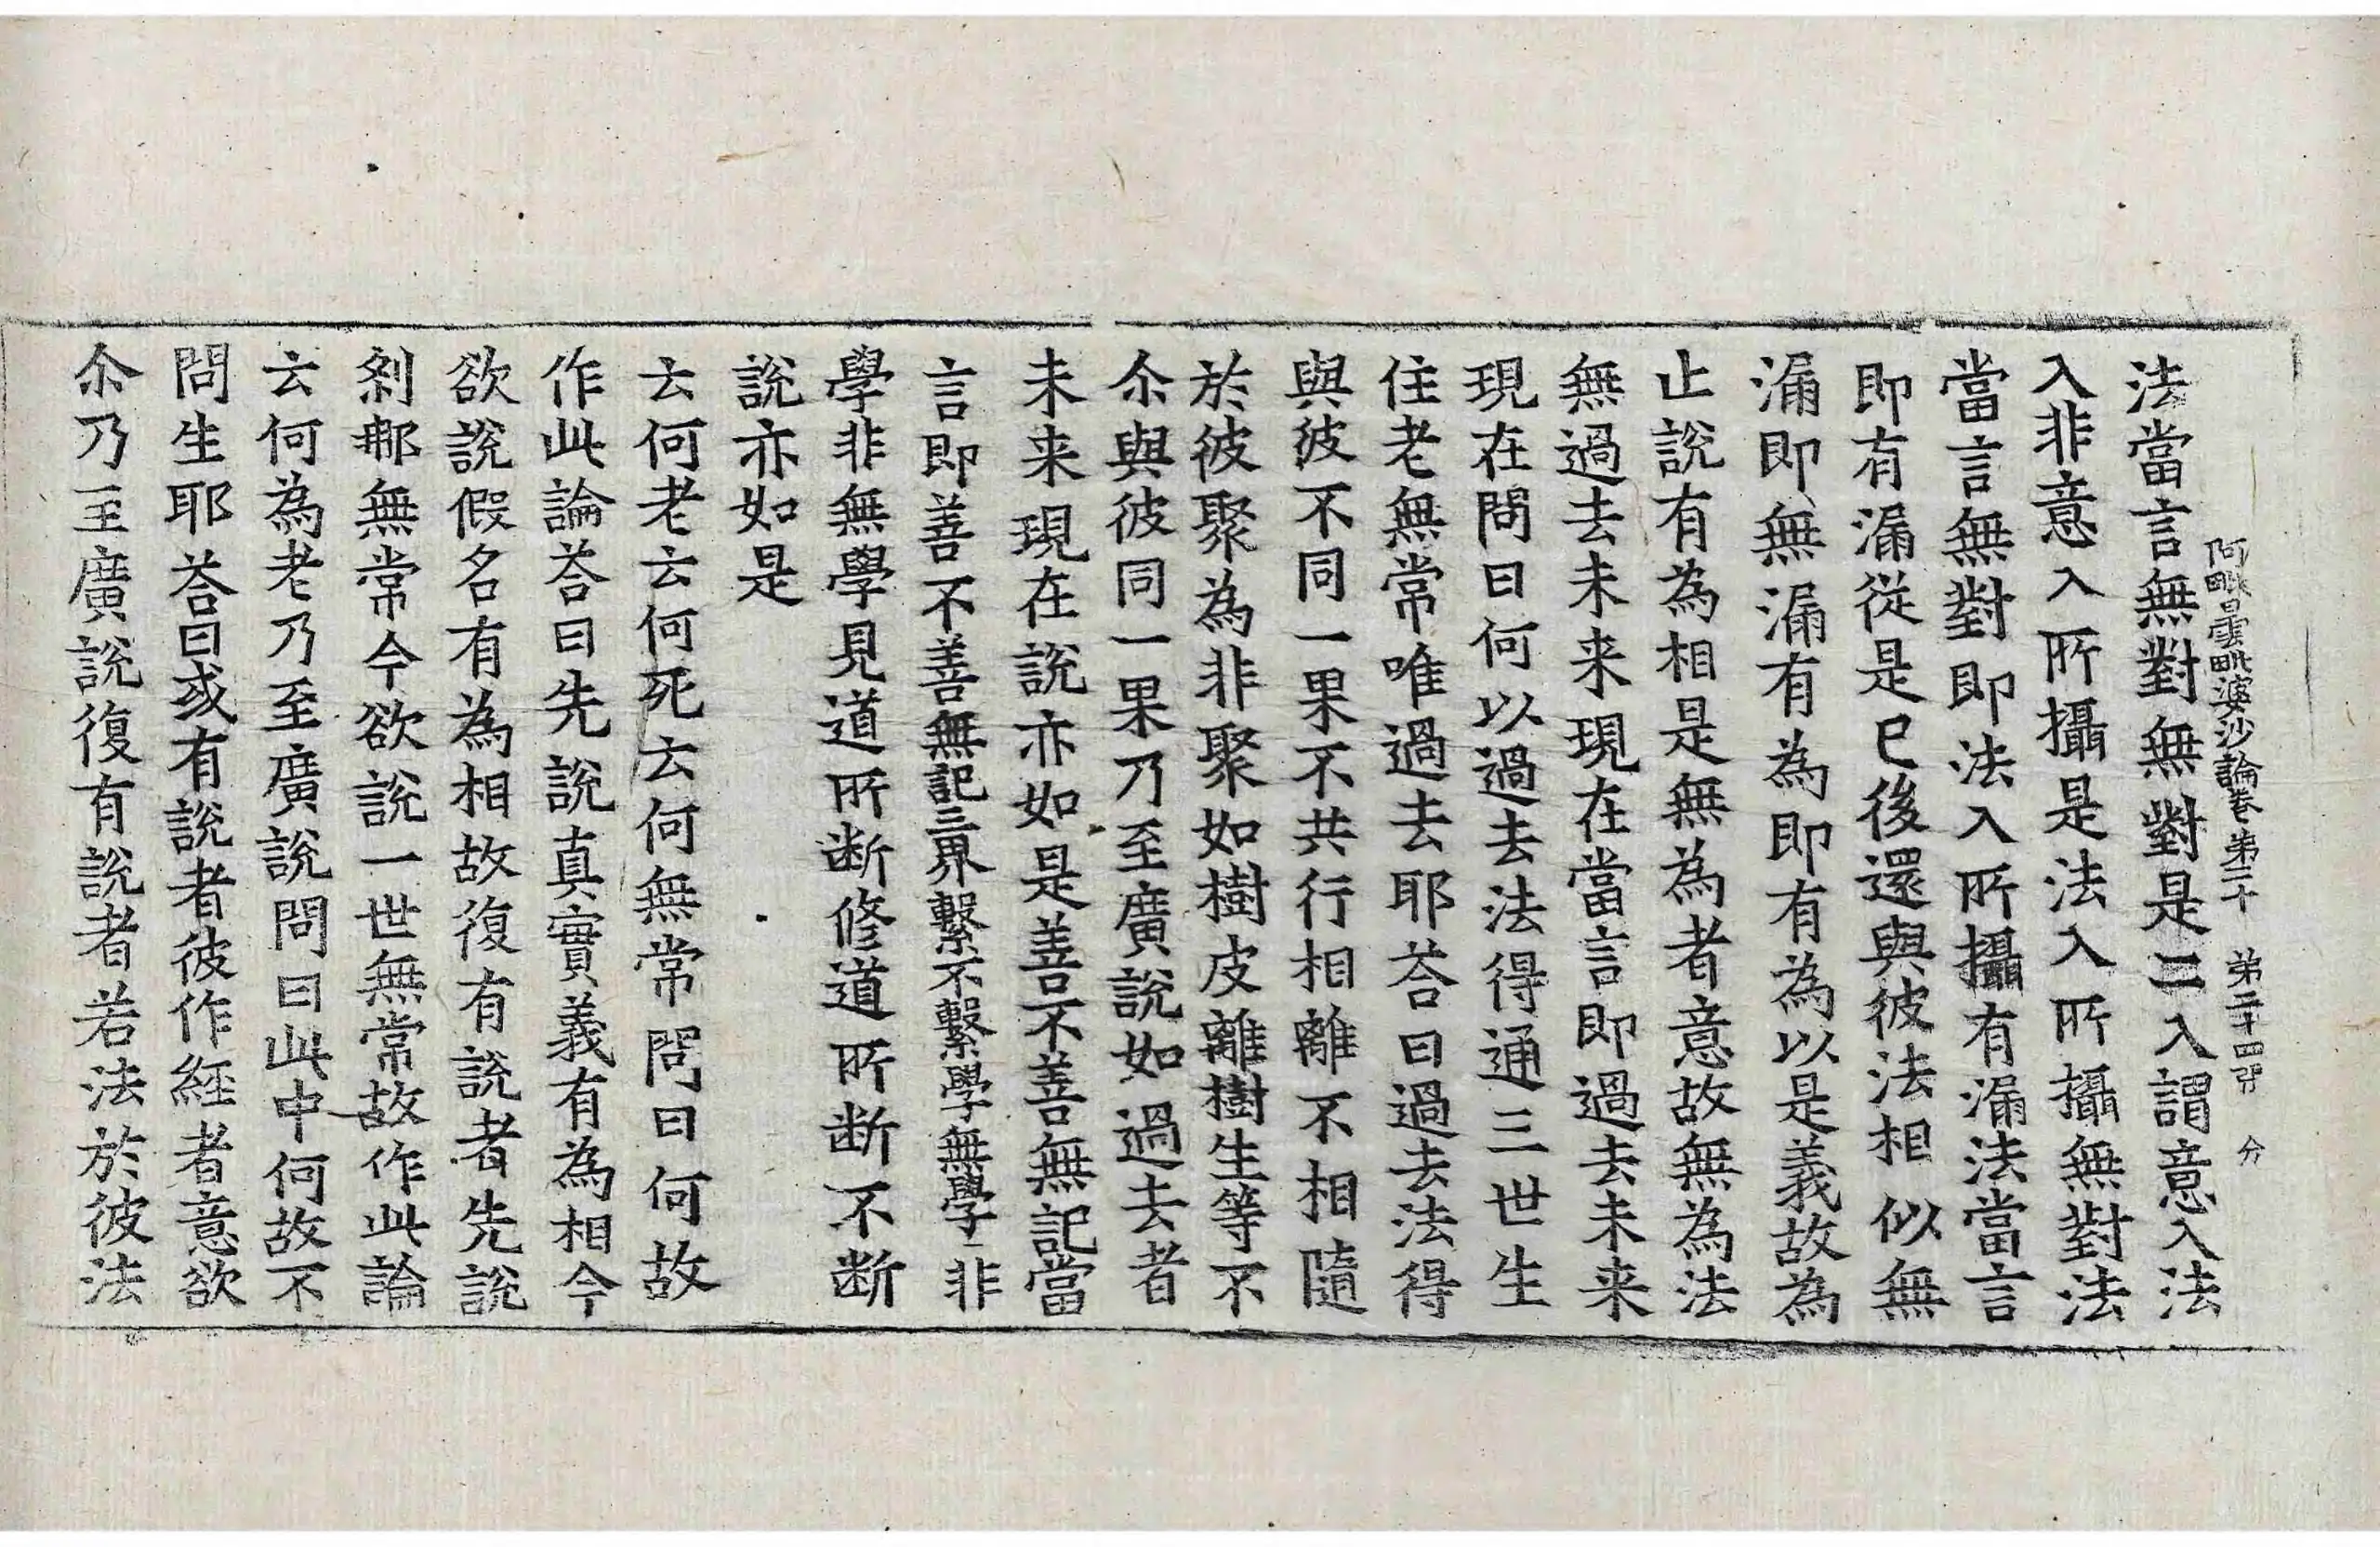 阿毗曇毗婆沙論卷第二十 第二十四張 分
法當言無對無對是二入謂意入法
入非意入所攝是法入所攝無對法
當言無對即法入所攝有漏法當言
即有漏從是已後還與彼法相似無
漏即無漏有為即有為以是義故為
止說有為相是無為者意故無為法
無過去未来現在當言即過去未来
現在問曰何以過去法得通三世生
住老無常唯過去耶荅曰過去法得
與彼不同一果不共行相離不相隨
於彼聚為非聚如樹皮離樹生等不
尒與彼同一果乃至廣說如過去者
未来現在說亦如是善不善無記當
言即善不善無記三界繫不繫學無學非
學非無學見道所断修道所断不断
說亦如是
云何老云何死云何無常問曰何故
作此論荅曰先說真實義有為相今
欲說假名有為相故復有說者先說
剎那無常今欲說一世無常故作此論
云何為老乃至廣說問曰此中何故不
問生耶荅曰或有說者彼作經者意欲
尒乃至廣說復有說者若法於彼法